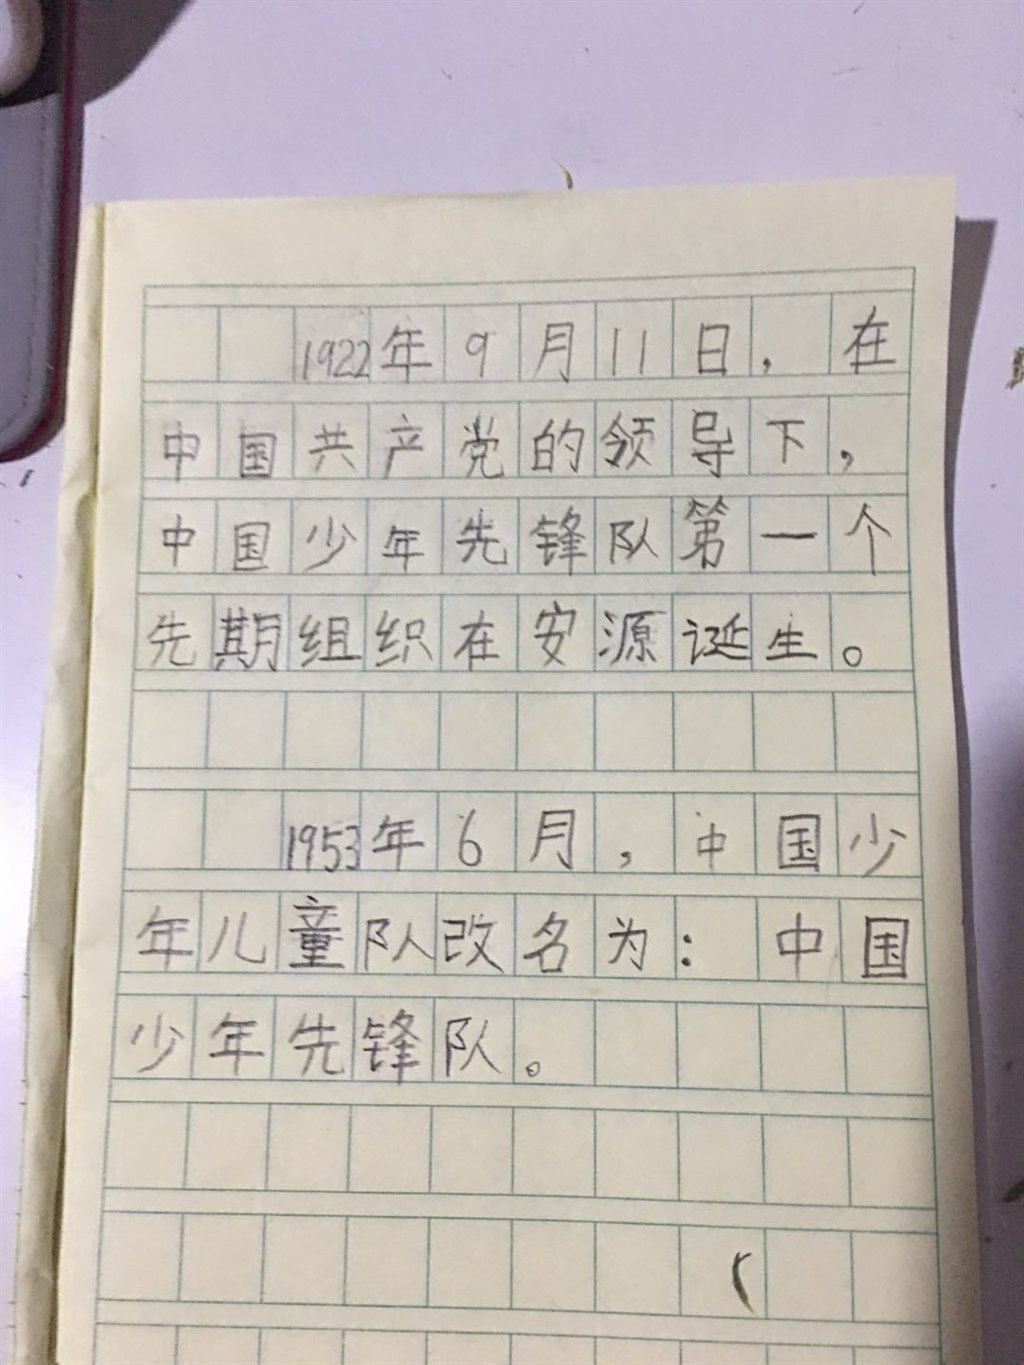 1922年9月11日，在
中国共产党的领导下，
中国少年先锋队第一个
先期组织在安源诞生。
1953年6月，中国少
年儿童队改名为：中国
少年先锋队。